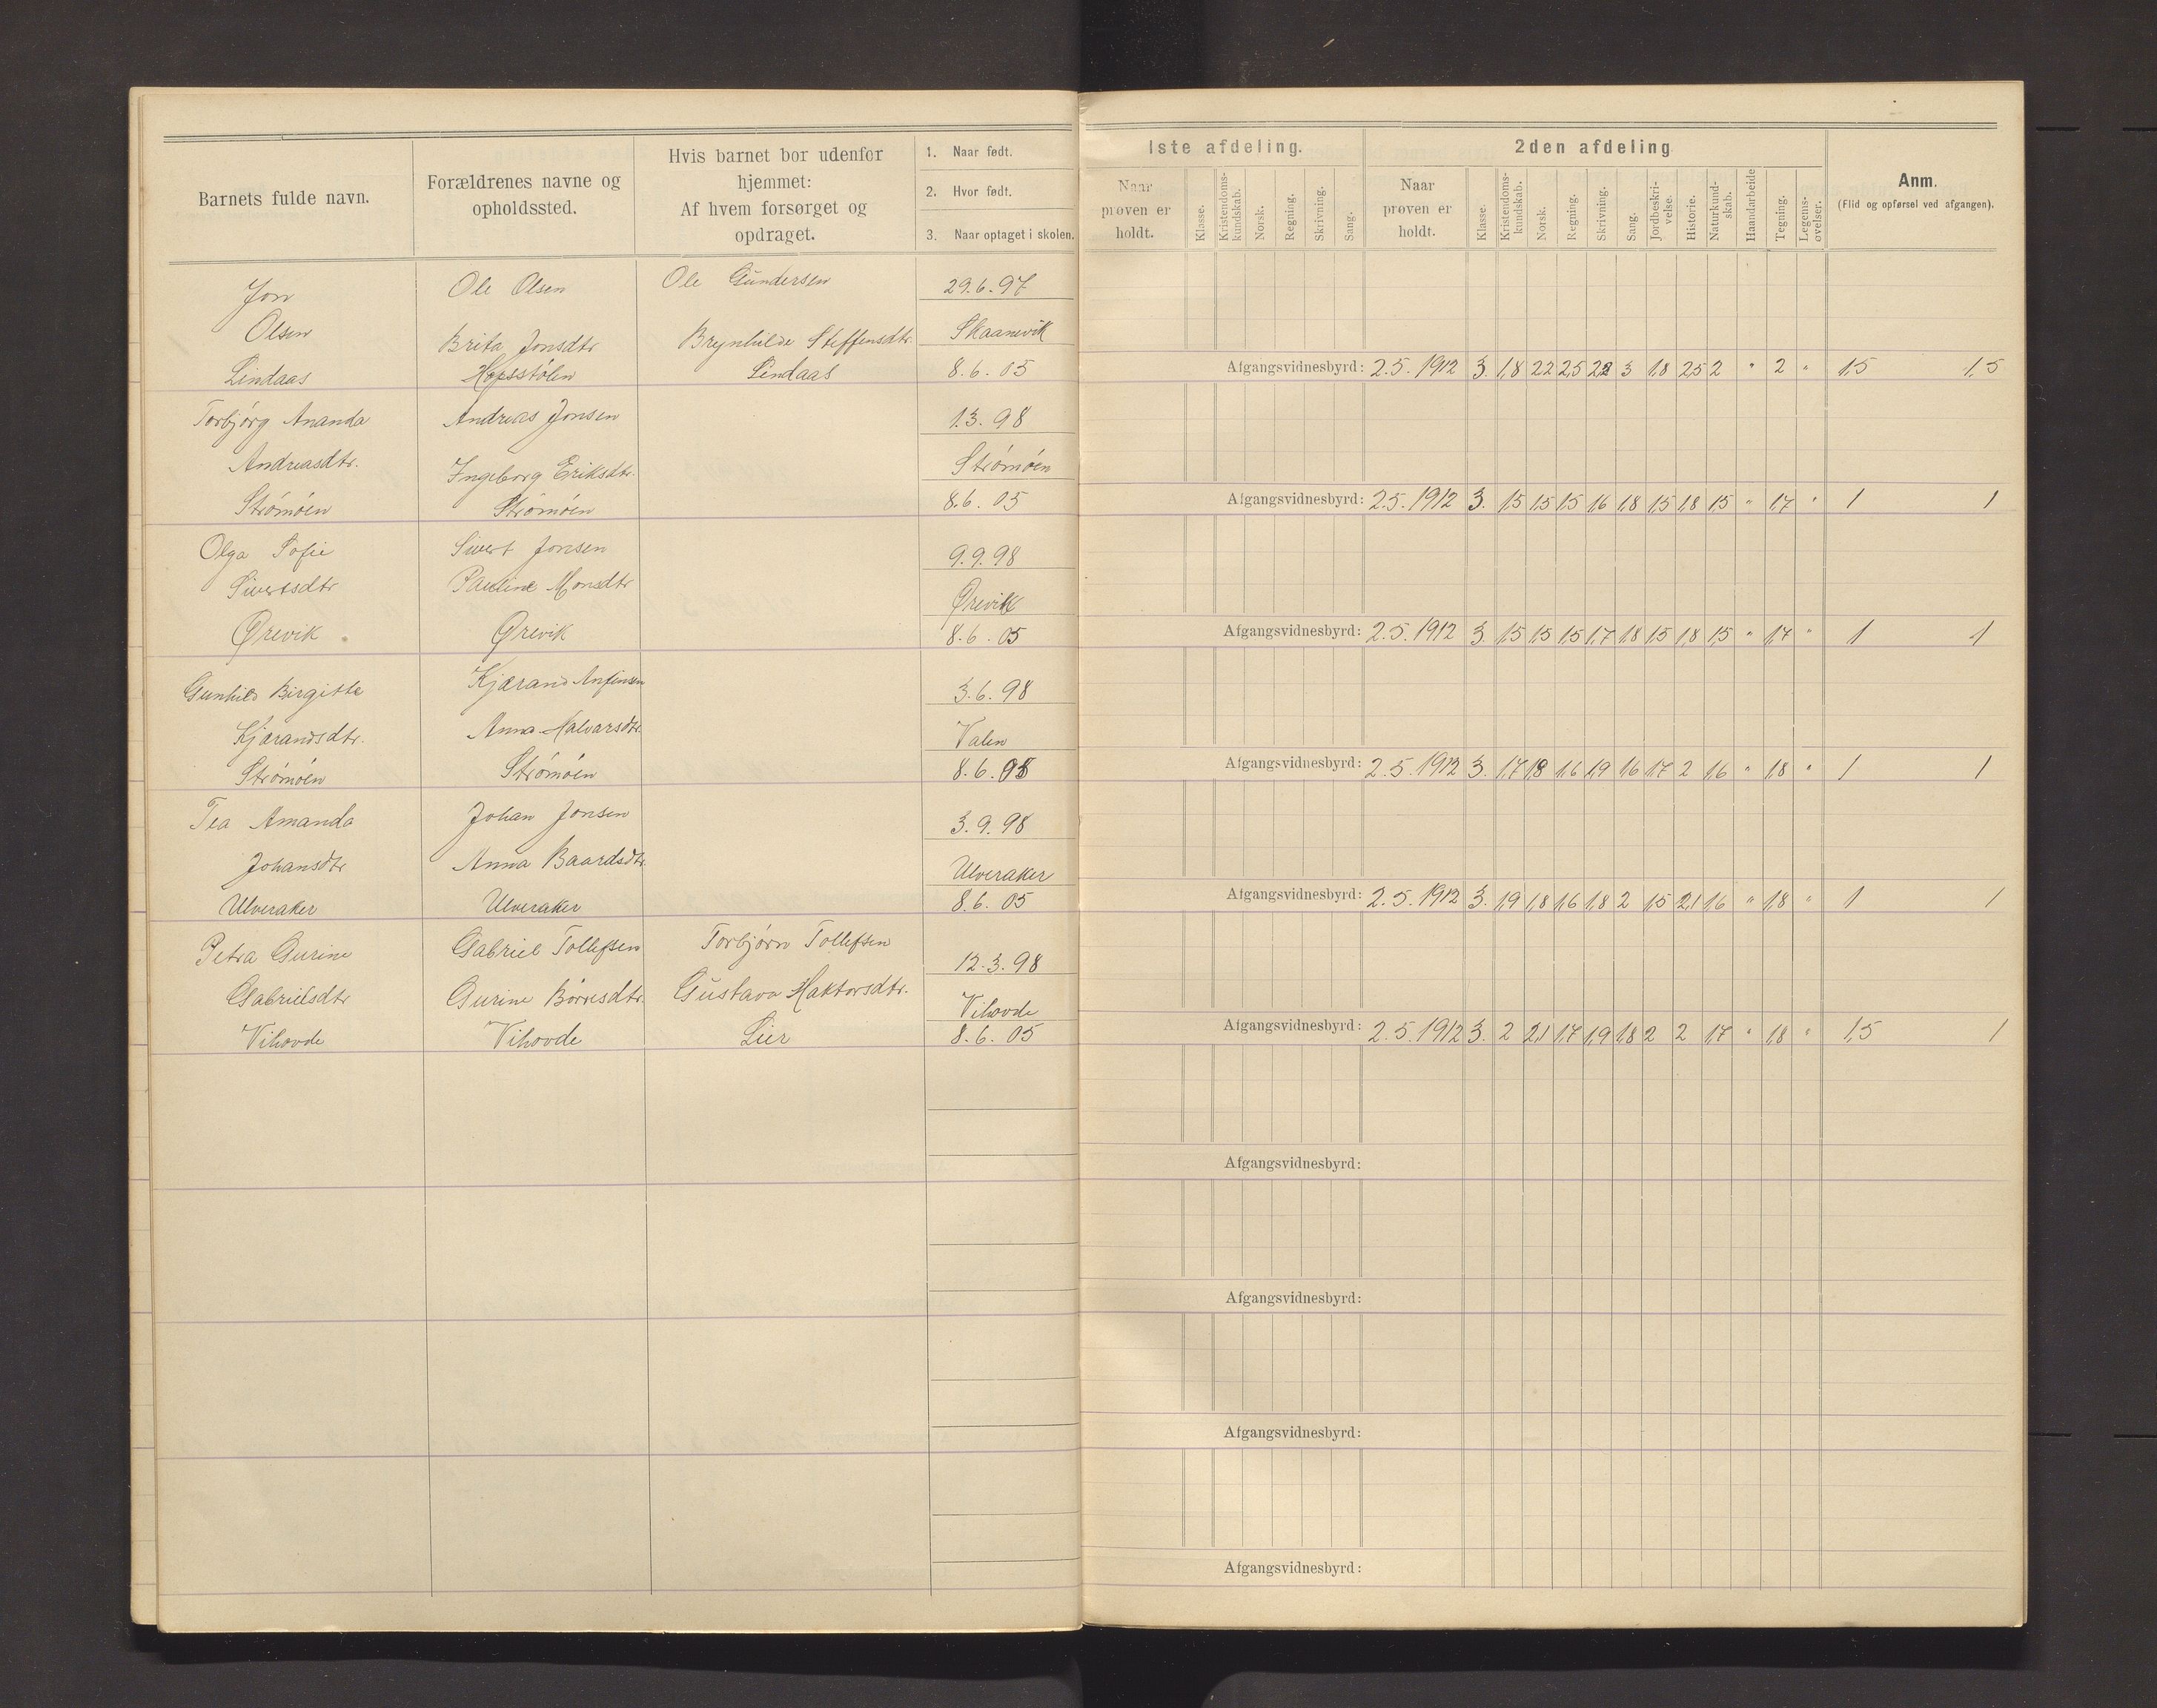 Barnets fulde navn.
Forældrenes navne og
opholdssted.
Hvis barnet bor udenfor
hjemmet:
Af hvem forsørget og
opdraget.
1. Naar født.
2. Hvor født.
3. Naar optaget i skolen.
1ste afdeling.
Naar
prøven er
holdt.
Klasse.
Kristendoms-
kundskab.
Norsk.
Regning.
Skrivning.
Sang.
2den afdeling
Naar
prøven er
holdt.
Klasse.
Kristendoms-
kundskab.
Norsk.
Regning.
Skrivning.
Sang.
Jordbeskri-
velse.
Historie.
Naturkund-
skab.
Haandarbeide
Tegning.
Legems-
øvelser.
Anm.
(Flid og opførsel ved afgangen).
Jon
Olsen
Lindaas
Ole Olsen
Brita Jonsdtr
Ole Gundersen
Brynhilde Steffensdtr.
Lindaas
29.6.97
Skaanevik
8.6.05
Afgangsvidnesbyrd: 2.5.1912 3. 1,8 2,2 2,5 2,2 3 1,8 2,5 2 " 2 " 1,5 1,5
Torbjørg Ananda
Andreasdtr.
Strømøen
Andreas Jonsen
Ingeborg Eriksdtr.
Strømøen
1.3.98
Strømøen
8.6.05
Afgangsvidnesbyrd: 2.5.1912 3. 1,5 1,5 1,5 1,6 1,8 1,5 1,8 1,5 " 1,7 " 1 1
Olga Sofie
Sivertsdtr
Ørevik
Sivert Jonsen
Pauline Monsdtr
Ørevik
9.9.98
Ørevik
8.6.05
Afgangsvidnesbyrd: 2.5.1912 3. 1,5 1,5 1,5 1,7 1,8 1,5 1,8 1,5 " 1,7 " 1 1
Gunhild Birgitte
Kjærandsdtr.
Strømøen
Kjærand Anfinsen
Anna Halvarsdtr.
Strømøen
3.6.98
Valen
8.6.05
Afgangsvidnesbyrd: 2.5.1912 3. 1,7 1,8 1,6 1,9 1,6 1,7 2 1,6 " 1,8 " 1 1
Tea Amanda
Johansdtr
Ulveraker
Johan Jonsen
Anna Baardsdtr.
Ulveraker
3.9.98
Ulveraker
8.6.05
Afgangsvidnesbyrd: 2.5.1912 3. 1,9 1,8 1,6 1,8 2 1,5 2,1 1,6 " 1,8 " 1 1
Petra Gurine
Gabrielsdtr
Vihovde
Gabriel Tollefsen
Gurine Børresdtr.
Vihovde
Torbjørn Tollefsen
Gustava Haktorsdtr.
Lier
12.3.98
Vihovde
8.6.05
Afgangsvidnesbyrd: 2.5.1912 3. 2 2,1 1,7 1,9 1,8 2 2 1,7 " 1,8 " 1,5 1
Afgangsvidnesbyrd:
Afgangsvidnesbyrd:
Afgangsvidnesbyrd:
Afgangsvidnesbyrd: